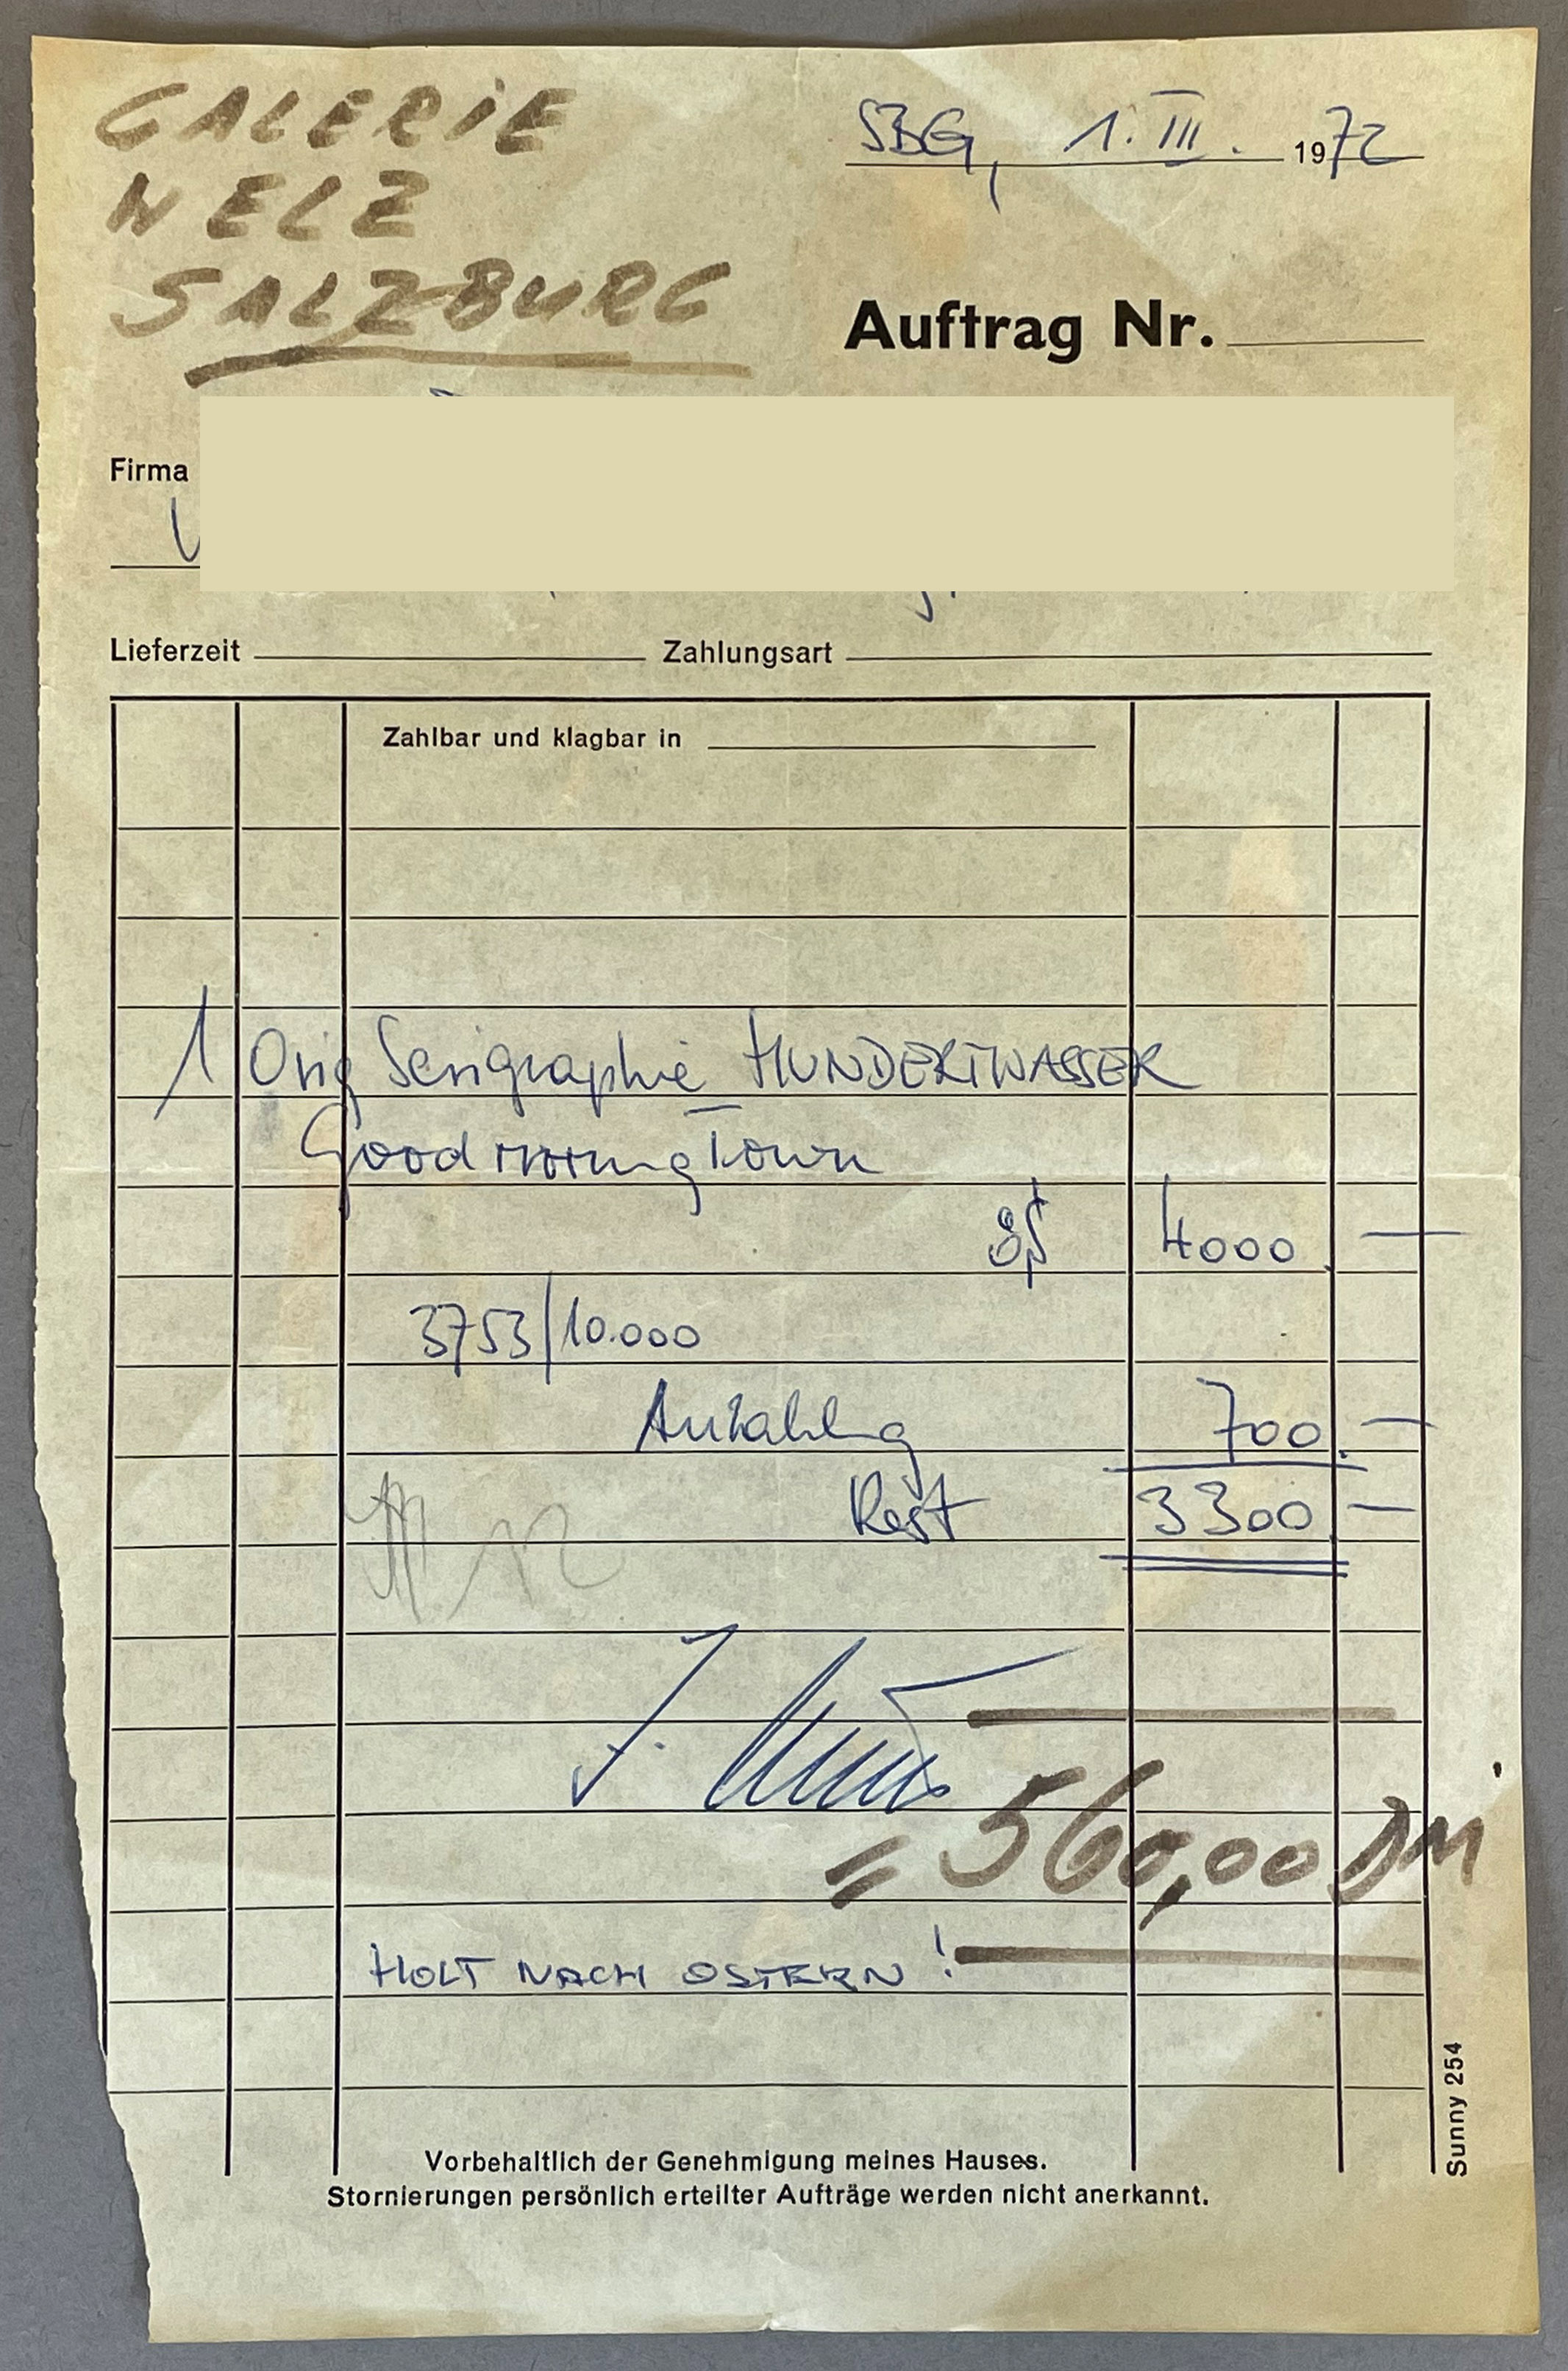 GALERIE
WELZ
SALZBURG
SBG, 1. III. 1972
Auftrag Nr.
Firma
Lieferzeit Zahlungsart
Zahlbar und klagbar in
1 Orig Serigraphie HUNDERTWASSER
Good morning Town
öS 4000.—
3753/10.000
Anzahlg 700.—
Rest 3300.—
= 560,00 DM
HOLT NACH OSTERN!
Vorbehaltlich der Genehmigung meines Hauses.
Stornierungen persönlich erteilter Aufträge werden nicht anerkannt.
Sunny 254